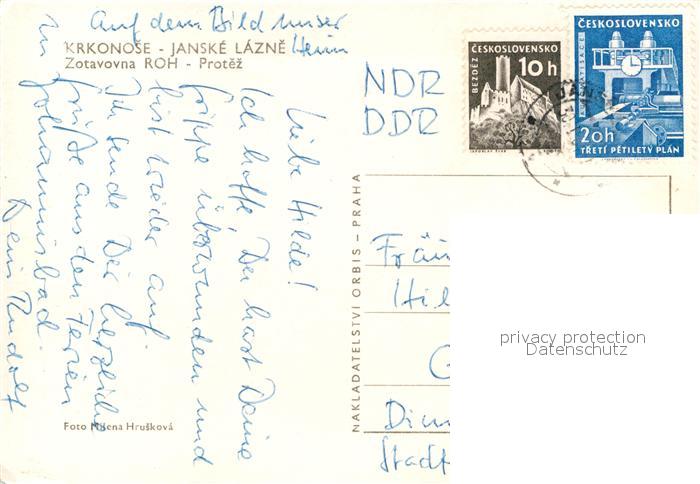 Auf dem Bild unser
Heim
KRKONOŠE - JANSKÉ LÁZNĚ
Zotavovna ROH - Protěž
Liebe Hilde!
Ich hoffe Du hast Deine
Grippe überwunden und
bist wieder auf.
Ich sende Dir herzliche
Grüße aus den Ferien
in Johannisbad.
Dein Rudolf
Foto Milena Hrušková
NAKLADATELSTVÍ ORBIS - PRAHA
NDR
DDR
ČESKOSLOVENSKO
10 h
BEZDĚZ
ČESKOSLOVENSKO
AUTOMATISACE
20h
TŘETÍ PĚTILETÝ PLÁN
Hil
G
Stadt
privacy protection
Datenschutz